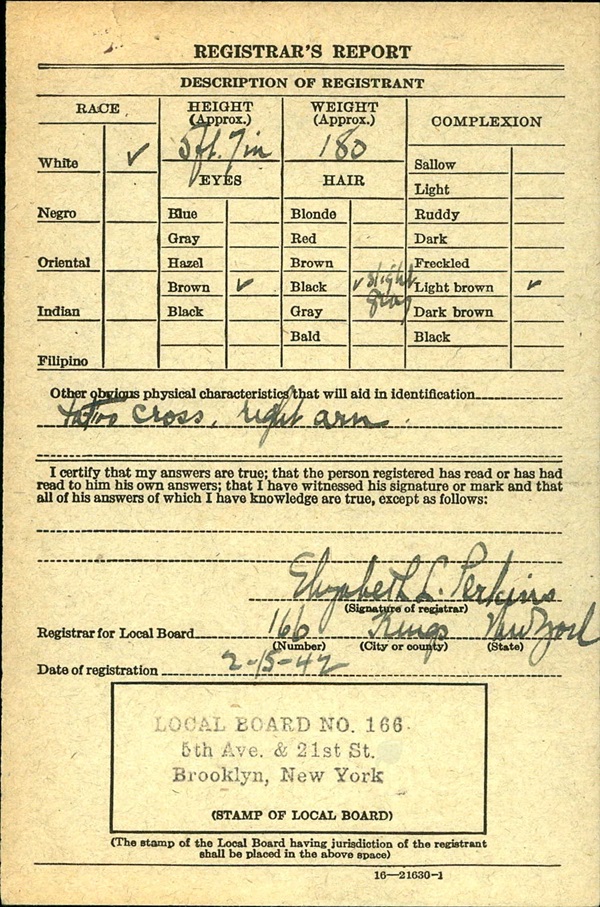 REGISTRAR'S REPORT
DESCRIPTION OF REGISTRANT
RACE
HEIGHT
(Approx.)
WEIGHT
(Approx.)
COMPLEXION
5 ft. 7 in
180
White ✓
Sallow
EYES
HAIR
Light
Negro
Blue
Blonde
Ruddy
Gray
Red
Dark
Oriental
Hazel
Brown
Freckled
Brown ✓
Black ✓ slight gray
Light brown ✓
Indian
Black
Gray
Dark brown
Bald
Black
Filipino
Other obvious physical characteristics that will aid in identification
tatoo cross, right arm.
I certify that my answers are true; that the person registered has read or has had
read to him his own answers; that I have witnessed his signature or mark and that
all of his answers of which I have knowledge are true, except as follows:
Elizabeth L. Perkins
(Signature of registrar)
Registrar for Local Board 166 Kings New York
(Number) (City or county) (State)
Date of registration 2-15-42
LOCAL BOARD NO. 166
5th Ave. & 21st St.
Brooklyn, New York
(STAMP OF LOCAL BOARD)
(The stamp of the Local Board having jurisdiction of the registrant
shall be placed in the above space)
16—21630-1